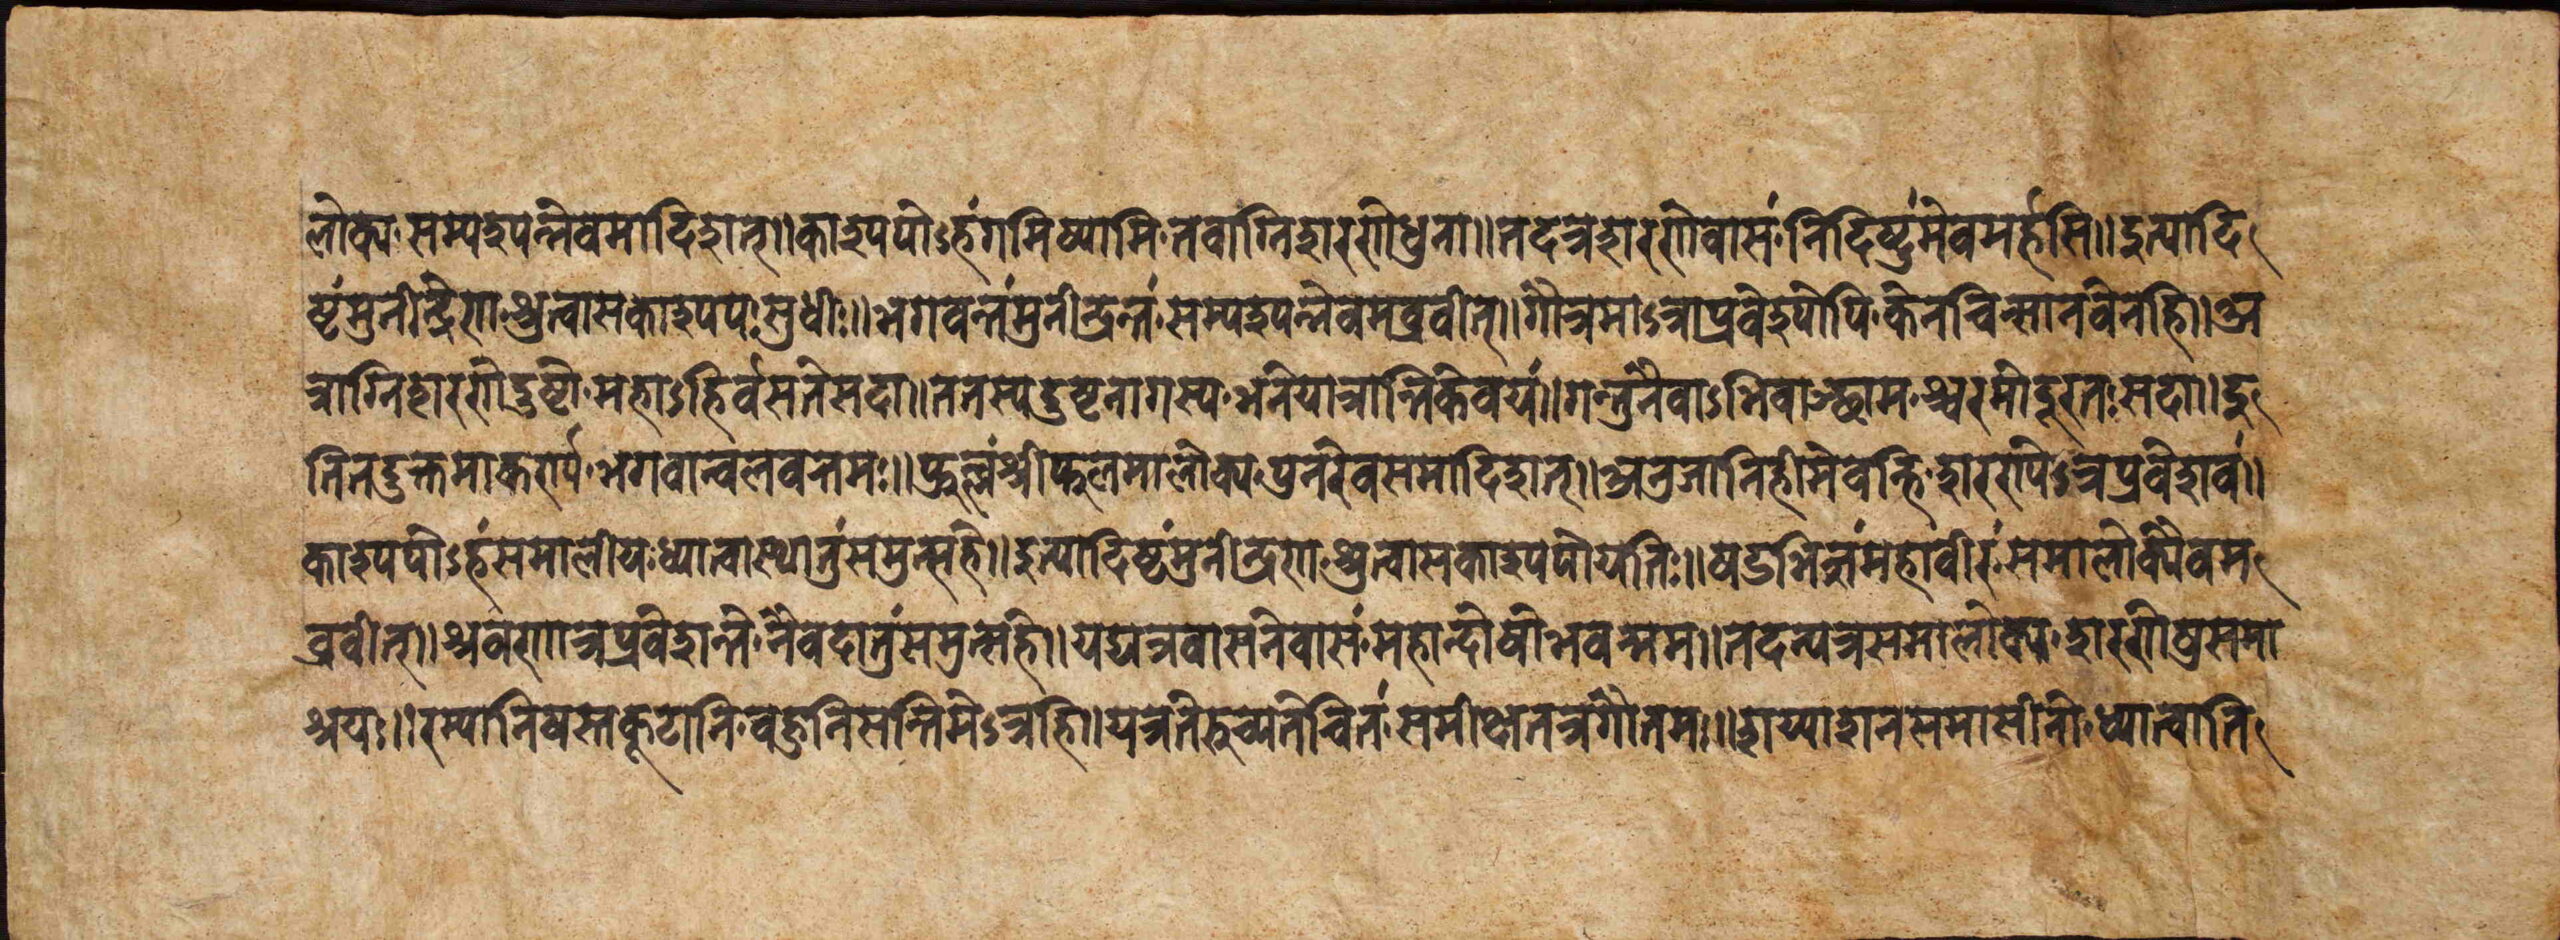 लोक्य सम्पश्यन्नेवमादिशत्॥ काश्यपोऽहं गमिष्यामि तवाग्निशरणेधुना॥ तदत्र शरणे वासं निर्दिष्टुं मेवमर्हसि॥ इत्यादि
ष्टं मुनीन्द्रेण श्रुत्वा स काश्यपः सुधीः॥ भगवन्तं मुनीन्द्रन्तं सम्पश्यन्नेवमब्रवीत्॥ गौतमाऽत्राप्रवेश्योपि केनचित्सानवेनहि॥ अ
त्राग्निशरणे दुष्टो महाऽहिर्वसते सदा॥ ततस्य दुष्टनागस्य भतेयात्रान्तिके वयं॥ गन्तुं नैवाऽभिवाञ्छाम श्चरमो दूरतः सदा॥ इ
ति तदुक्तमाकर्ण्य भगवान्बलवत्तमः॥ फुल्लं श्रीफलमालोक्य पुनरेव समादिशत्॥ अनुजानिहि मे वह्नि शरणेऽत्र प्रवेशवं॥
काश्यपोऽहं समालीय ध्यात्वा स्थातुं समुत्सहे॥ इत्यादिष्टं मुनीन्द्रेण श्रुत्वा स काश्यपो यतिः॥ षडभिज्ञं महावीरं समालोक्यैवम
ब्रवीत्॥ श्रवणात्र प्रवेशन्ते नैव दातुं समुत्सहे॥ यद्यत्र वासतेवासं महान्दोषो भवन्मम॥ तदन्यत्र समालोक्य शरणेषु समा
श्रय॥ रम्यानि वस्तकूटानि वहुनि सन्ति मेऽत्रहि॥ यत्र ते रुच्यते चित्तं समीक्ष्य तत्र गौतमः॥ शय्याशन समासीनो ध्यात्वाति